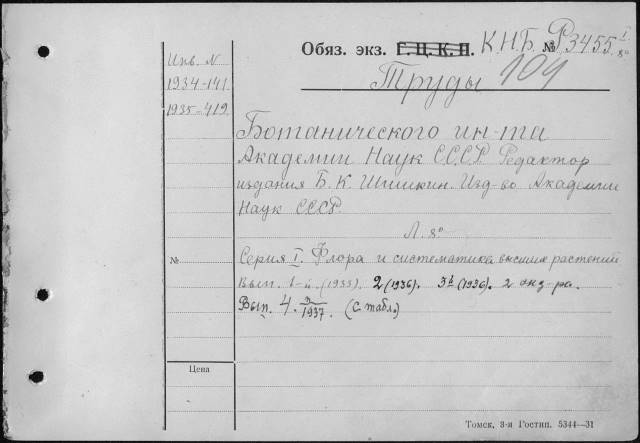 Обяз. экз. Г.Ц.К.П. К.Н.Б. № Р3455 I 8°
Труды 104
Инв. N
1934-141
1935-419
Ботанического ин-та
Академии Наук СССР. Редактор
издания Б. К. Шишкин. Изд-во Академии
Наук СССР.
Л. 8°
№ Серия I. Флора и систематика высших растений
Вып. 1-й (1933). 2 (1936). 3 (1936). 2 экз-ра.
Вып. 4. 1937. (С табл.)
Цена
Томск, 3-я Гостип. 5344—31